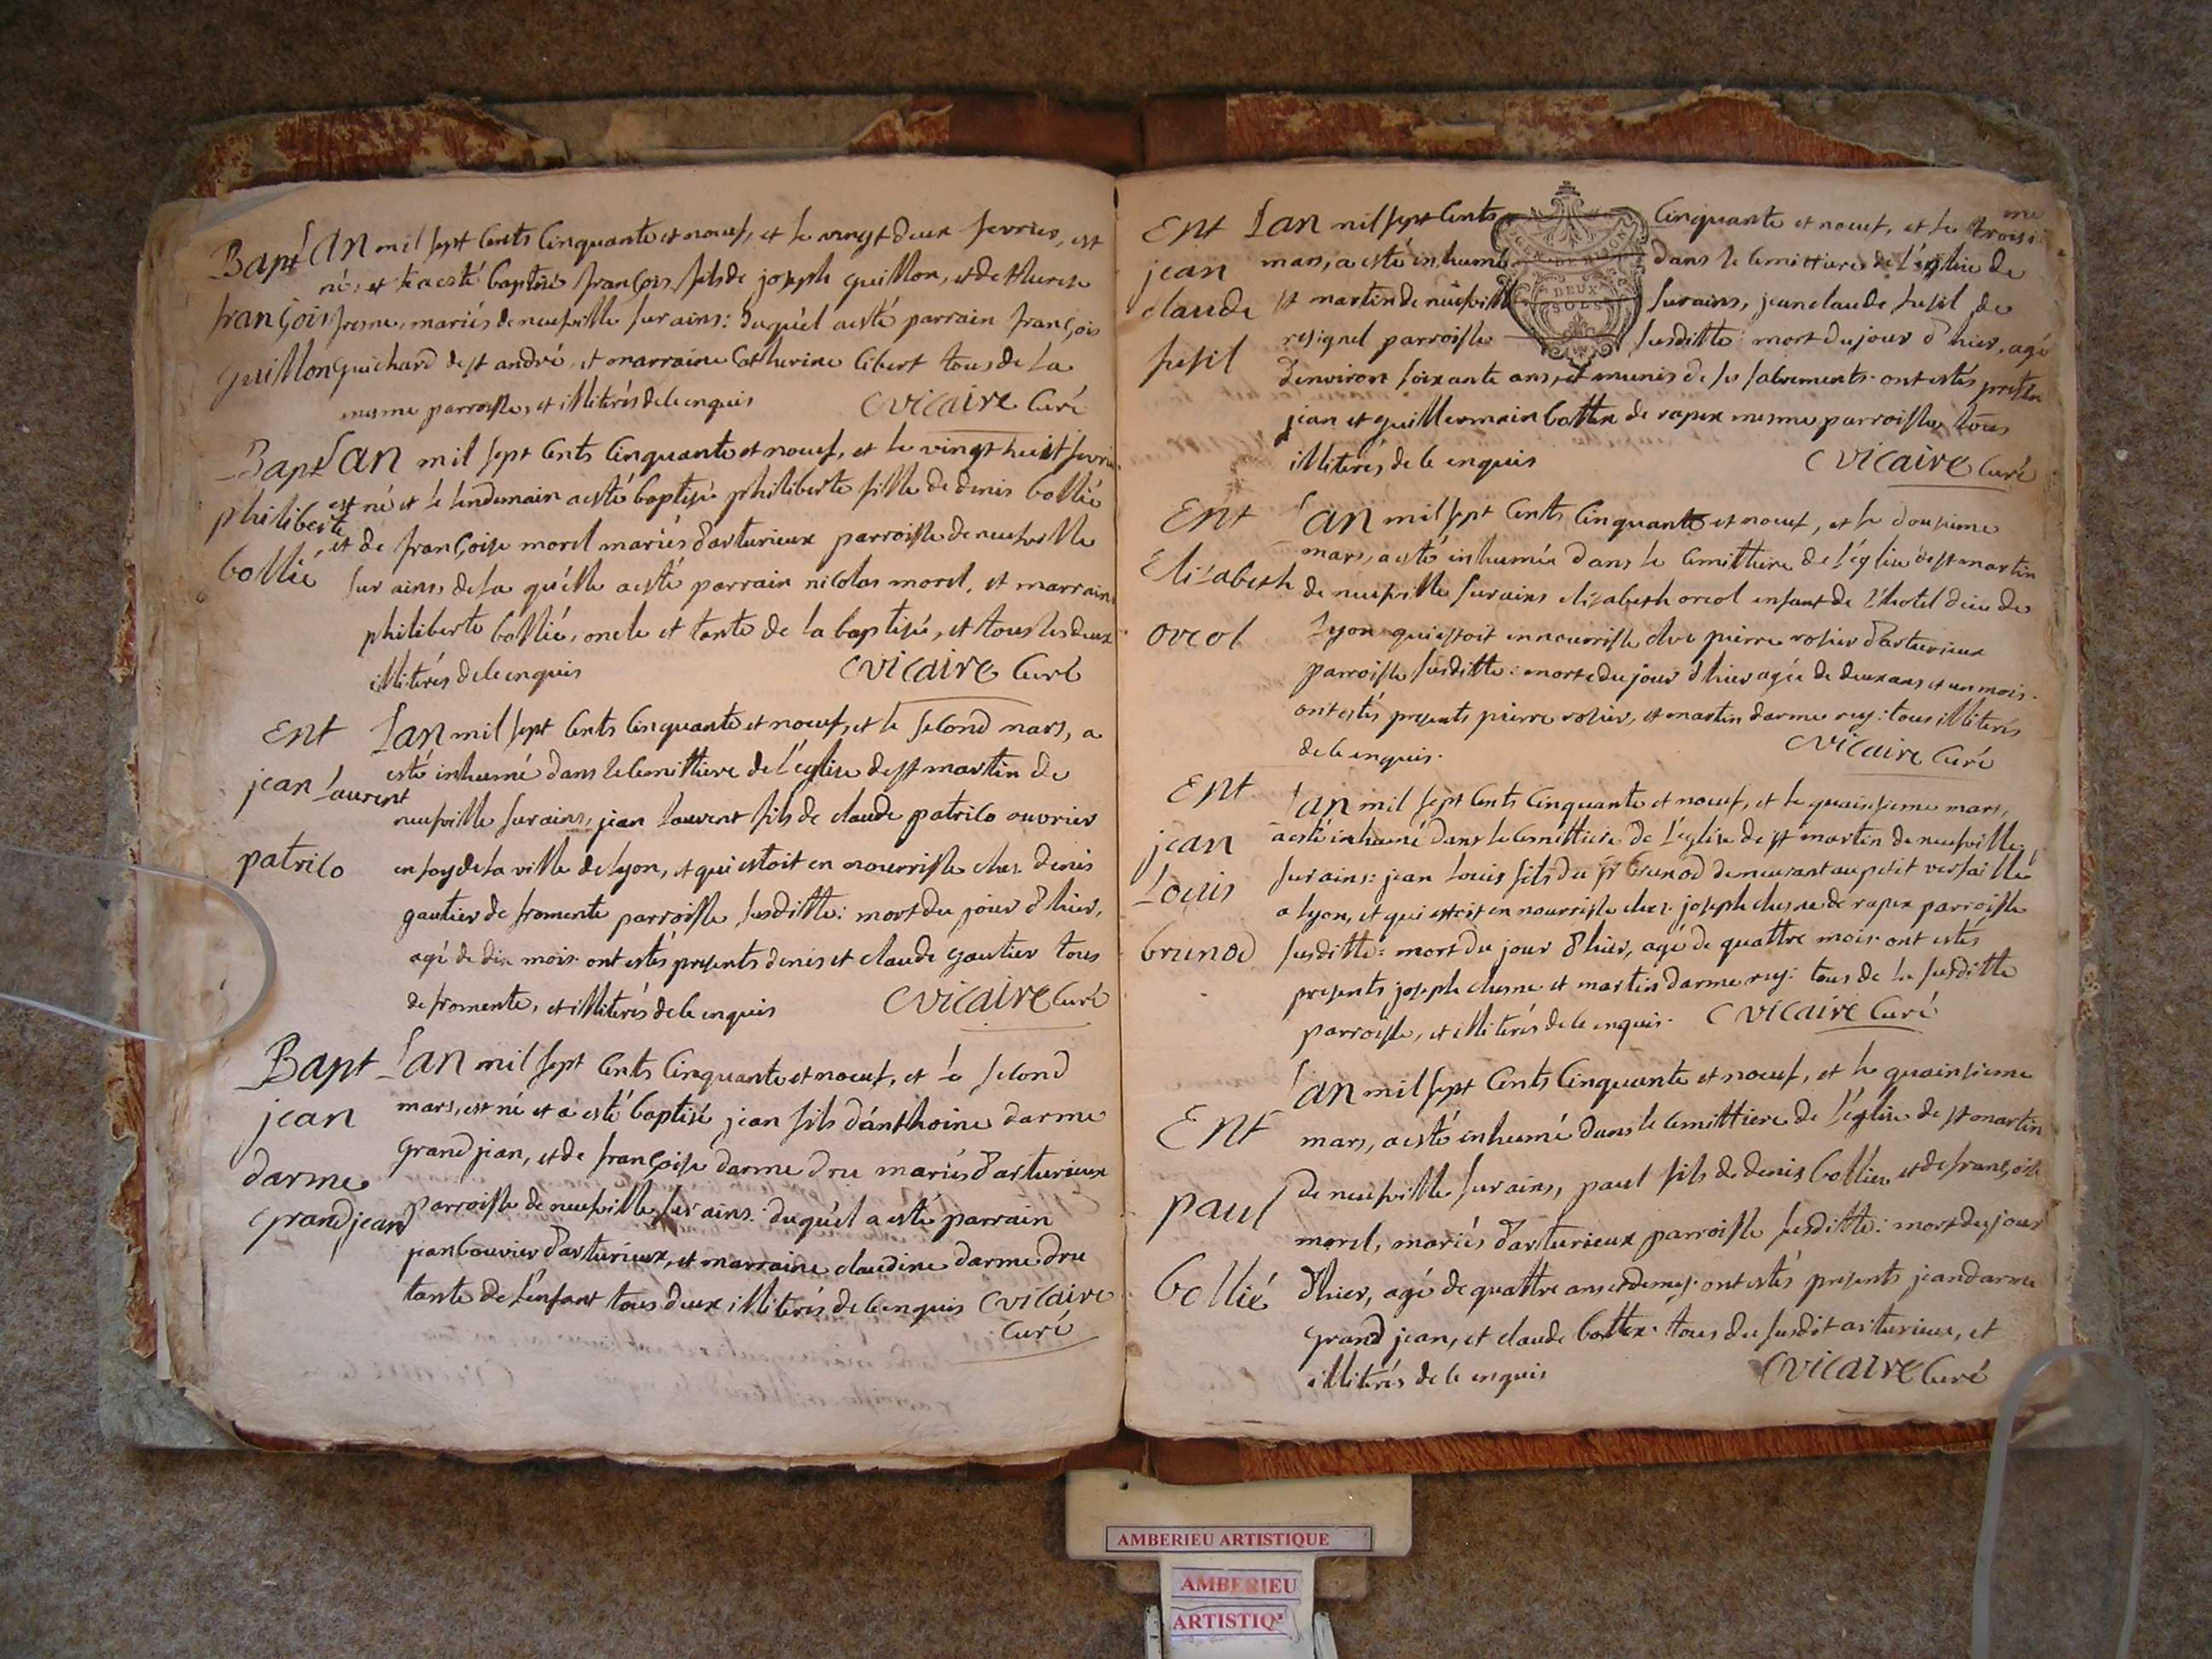 Bapt
françois
guillon
L'an mil sept cents cinquante et noeuf, et le vingt deux fevrier, est
né, et a esté baptisé françois fils de joseph guillon, et de therese
fresne, mariés de neufville sur ains: duquel a esté parrain françois
guichard de st andré, et marraine catherine libert tous de la
mesme parroisse, et illiterés de ce enquis
C vicaire Curé
Bapt
philiberte
bollié
L'an mil sept cents cinquante et noeuf, et le vingt huit fevrier
est né et le lendemain a esté baptisée philiberte fille de denis bollié
et de françoise morel mariés d'arturieux parroisse de neufville
sur ains de la quelle a esté parrain nicolas morel, et marraine
philiberte bollié, oncle et tante de la baptisée, et tous les deux
illiterés de ce enquis
C vicaire Curé
Ent
jean Laurent
patrico
L'an mil sept cents cinquante et noeuf, et le second mars, a
esté inhumé dans le cemittiere de l'eglise de st martin de
neufville sur ains, jean laurent fils de claude patrico ouvrier
en soy de la ville de lyon, et qui estoit en nourrisse chez denis
gautier de fromente parroisse susditte: mort du jour d'hier,
agé de dix mois. ont estés presents denis et claude gautier tous
de fromente, et illiterés de ce enquis
C vicaire Curé
Bapt
jean
darme
grand jean
L'an mil sept cents cinquante et noeuf, et le second
mars, est né et a esté baptisé jean fils d'anthoine darme
grand jean, et de françoise darme dru mariés d'arturieux
parroisse de neufville sur ains: duquel a esté parrain
jean bouvier d'arturieux, et marraine claudine darme dru
tante de l'enfant tous deux illiterés de ce enquis C vicaire
Curé
GEN. DE DIJON
DEUX
SOLS
Ent
jean
claude
fusil
L'an mil sept cents cinquante et noeuf, et le troisi me
mars, a esté inhumé dans le cemittiere de l'eglise de
st martin de neufville sur ains, jean claude fusil de
resignel parroisse susditte: mort du jour d'hier, agé
d'environ soixante ans, et munis de ses sacrements. ont estés presen
jean et guillermain bottex de rapex mesme parroisse, tous
illiterés de ce enquis
C vicaire Curé
Ent
Elizabeth
oreol
L'an mil sept cents cinquante et noeuf, et le dousieme
mars, a esté inhumée dans le cemittiere de l'eglise de st martin
de neufville sur ains elizabeth oreol enfant de l'hotel dieu de
lyon qui estoit en nourrisse chez pierre rosier d'arturieux
parroisse susditte: morte du jour d'hier agée de deux ans et un mois.
ont estés presents pierre rosier, et martin darme rey: tous illiterés
de ce enquis.
C vicaire Curé
Ent
jean
Louis
brunod
L'an mil sept cents cinquante et noeuf, et le quainsieme mars,
a esté inhumé dans le cemittiere de l'eglise de st martin de neufville
sur ains: jean louis fils du sr brunod demeurant au petit versaille
a lyon, et qui estoit en nourrisse chez joseph chesne de rapex parroisse
susditte: mort du jour d'hier, agé de quattre mois. ont estés
presents joseph chesne et martin darme rey: tous de la susditte
parroisse, et illiterés de ce enquis. C vicaire Curé
Ent
paul
bollié
L'an mil sept cents cinquante et noeuf, et le quainsieme
mars, a esté inhumé dans le cemittiere de l'eglise de st martin
de neufville sur ains, paul fils de denis bollier et de françoise
morel, mariés d'arturieux parroisse susditte: mort du jour
d'hier, agé de quattre ans et demey. ont estés presents jean darme
grand jean, et claude bottex. tous du susdit arturieux, et
illiterés de ce enquis
C vicaire Curé
AMBERIEU ARTISTIQUE
AMBERIEU
ARTISTIQ